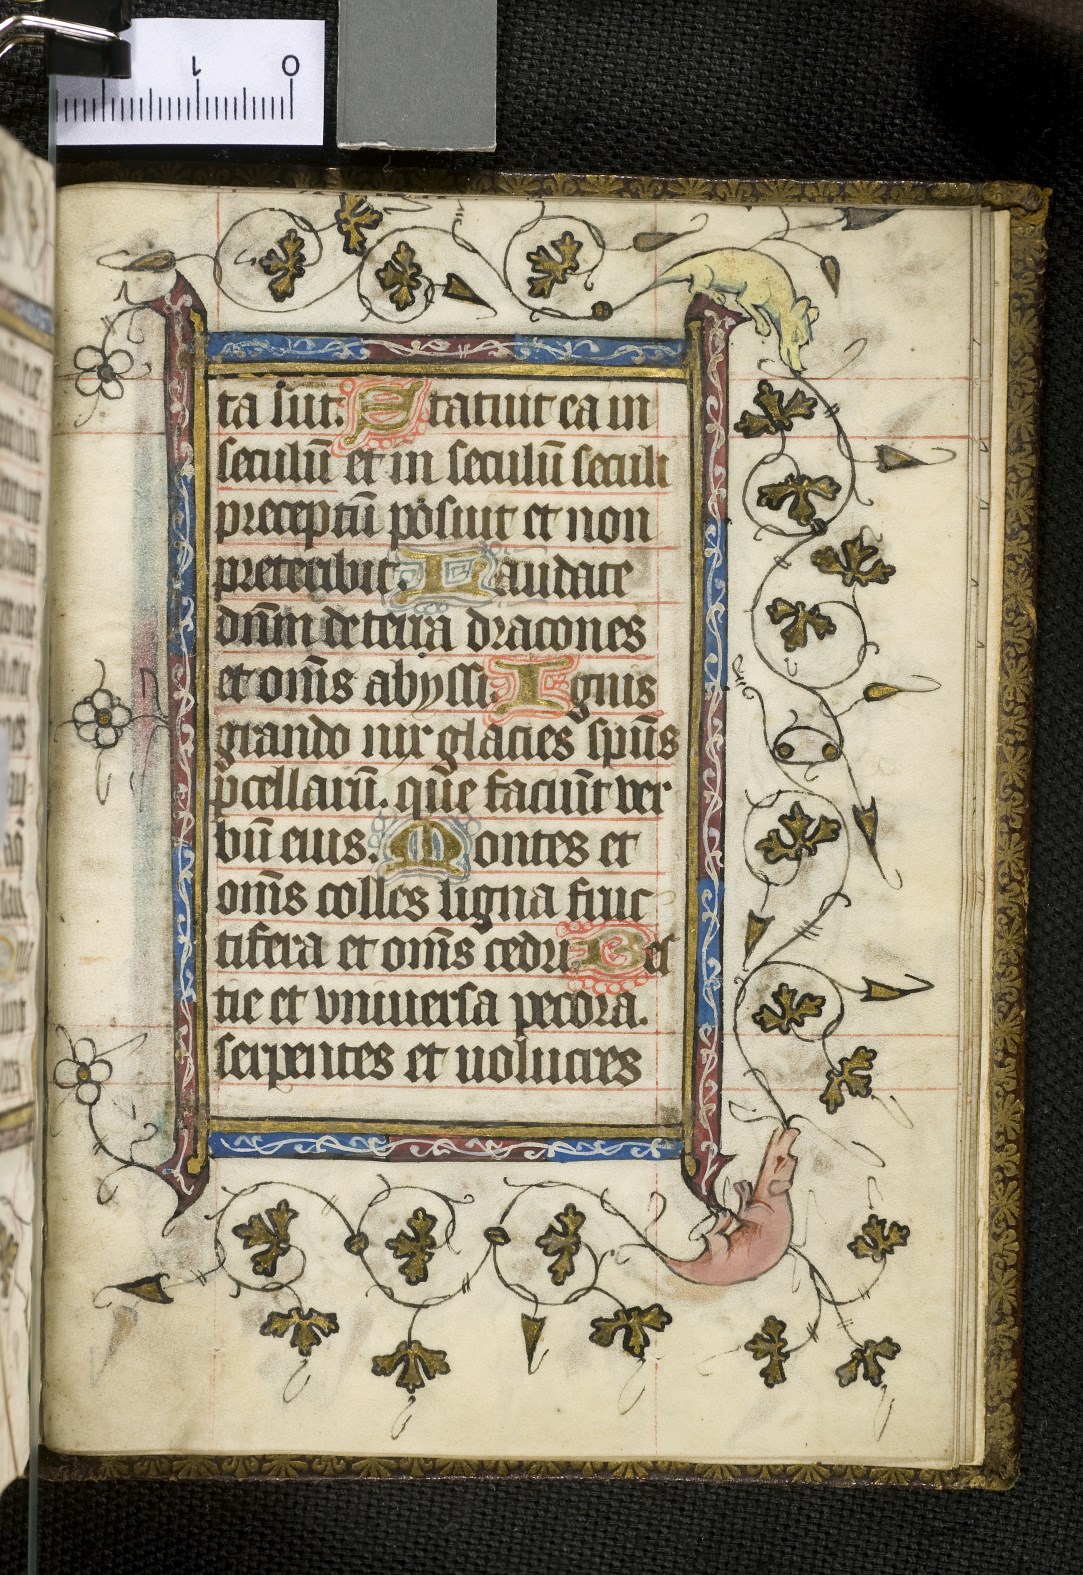 1 0
ta sūt. Statuit ea in
seculū et in seculū seculi
preceptū posuit et non
preteribit. Laudate
dn̄m de terra dracones
et om̄s abyssi. Ignis
grando nix glacies sp̄us
ꝓcellarū. que faciūt ver
bū eius. Montes et
om̄s colles ligna fruc
tifera et om̄s cedri. Bes
tie et vniuersa pecora.
serpentes et uolucres